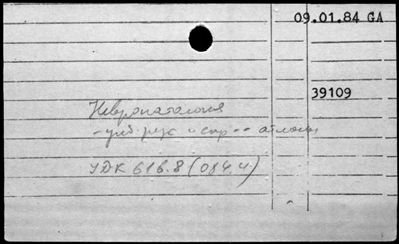 09.01.84 GA
39109
Невропатология
- учеб. рук. и спр. -- атласы
УДК 616.8(084.4)